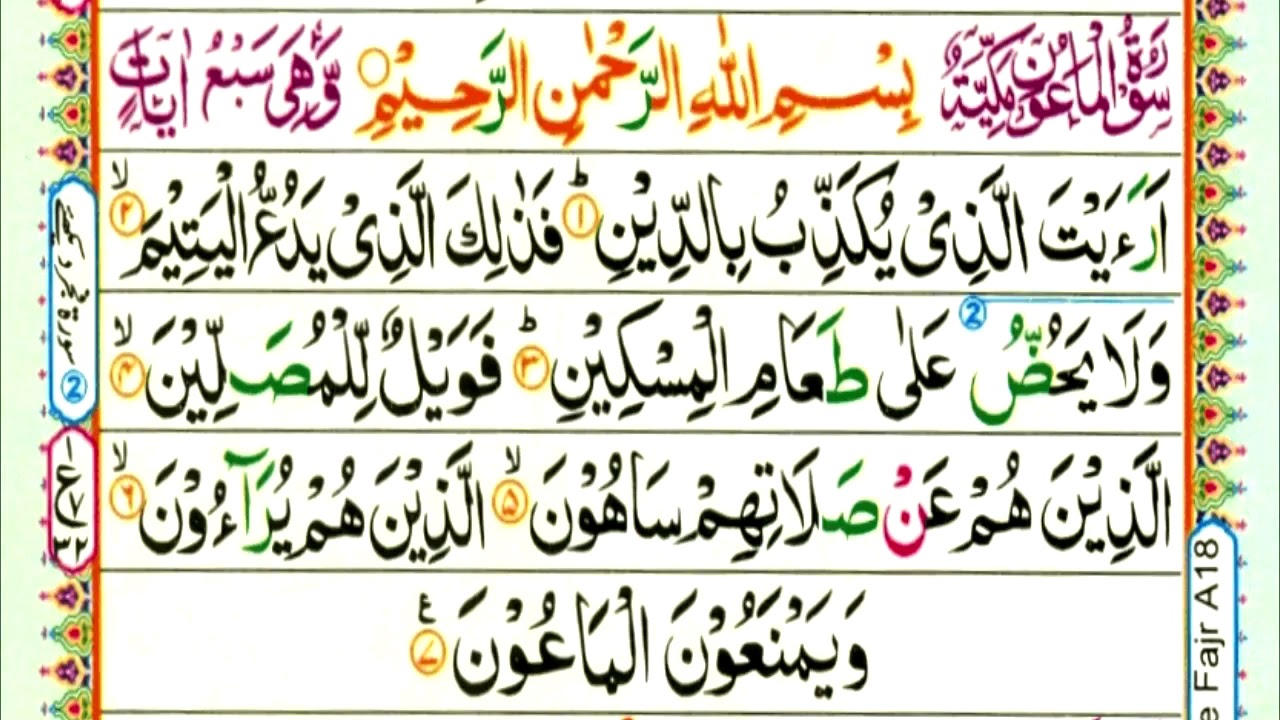 سُوْرَةُ الْمَاعُوْنِ مَكِّيَّةٌ بِسْمِ اللّٰهِ الرَّحْمٰنِ الرَّحِيْمِ ○ وَّهِىَ سَبْعُ اٰيَاتٍ
اَرَءَيْتَ الَّذِىْ يُكَذِّبُ بِالدِّيْنِ ؕ ۱ فَذٰلِكَ الَّذِىْ يَدُعُّ الْيَتِيْمَ ۙ ۲
وَلَا يَحُضُّ ② عَلٰى طَعَامِ الْمِسْكِيْنِ ؕ ۳ فَوَيْلٌ لِّلْمُصَلِّيْنَ ۙ ۴
الَّذِيْنَ هُمْ عَنْ صَلَاتِهِمْ سَاهُوْنَ ۙ ۵ الَّذِيْنَ هُمْ يُرَآءُوْنَ ۙ ۶
وَيَمْنَعُوْنَ الْمَاعُوْنَ ۧ ۷
② سورۃ فجر دیکھئے
e Fajr A18